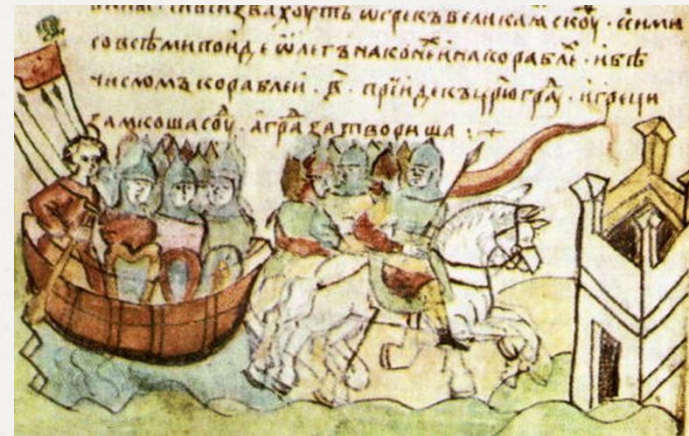 си вси звахоуть ѿ грекъ великаꙗ скоуⷴ · с сими
со всѣми поиде ѡлегъ на конеⷯ и на кораблеⷯ · и бѣ
числомъ кораблеи · в҃ · прїиде къ цр҃югроⷣ · и греци
замкоша соуⷣ · а граⷣ затвориша :·